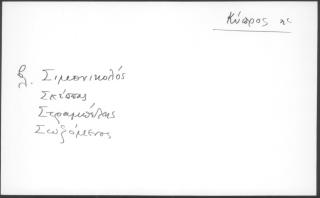 Κύπρος
βλ. Σιμενικολός
Σκέπας
Στραμπέλης
Σωζόμενος